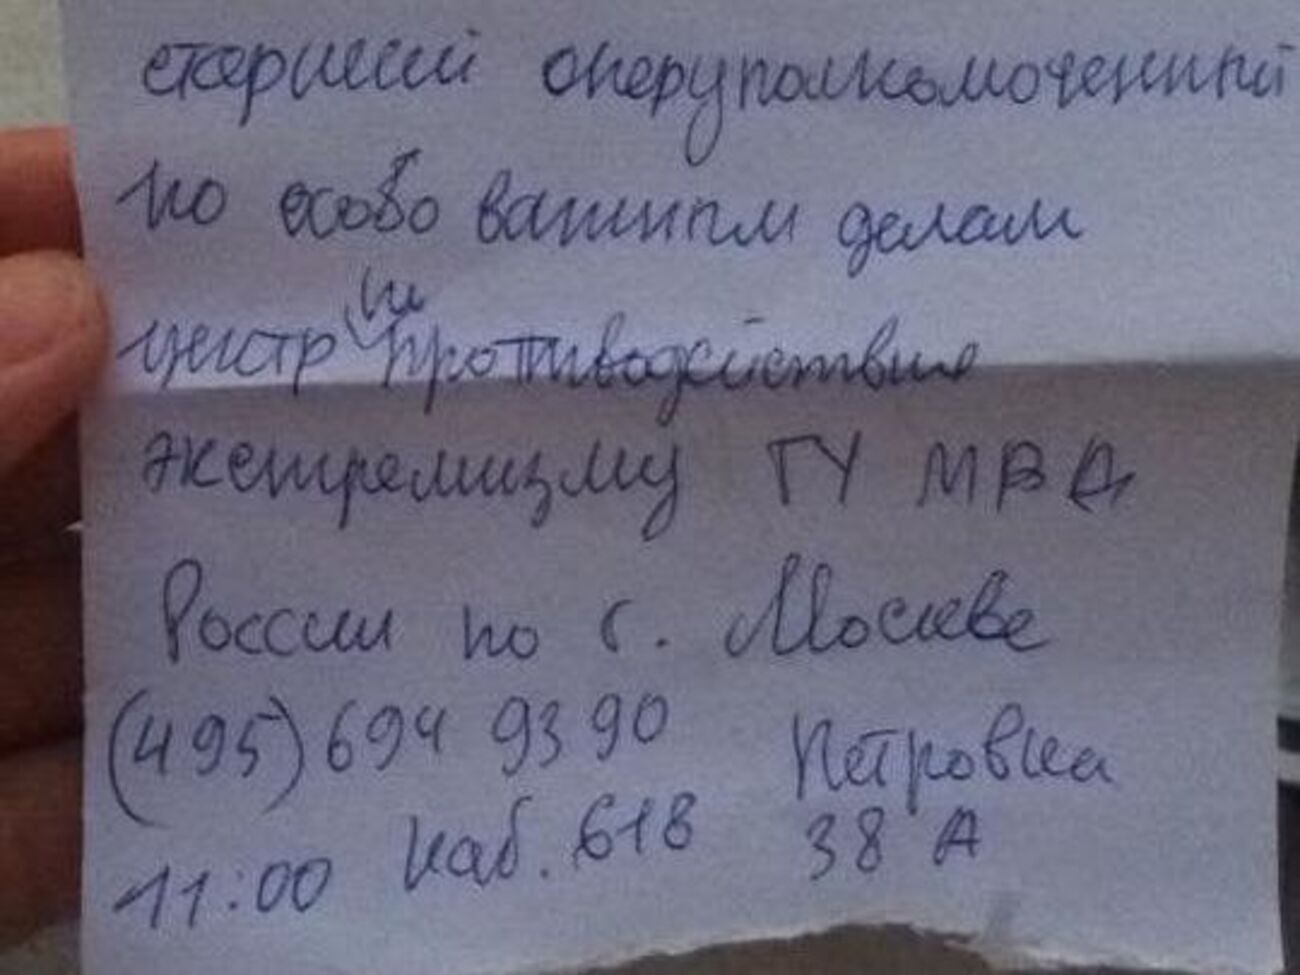 старший оперуполномоченный
по особо важным делам
центр по
противодействию
экстремизму ГУ МВД
России по г. Москве
(495) 694 93 90 Петровка
38 А
11:00 каб. 618